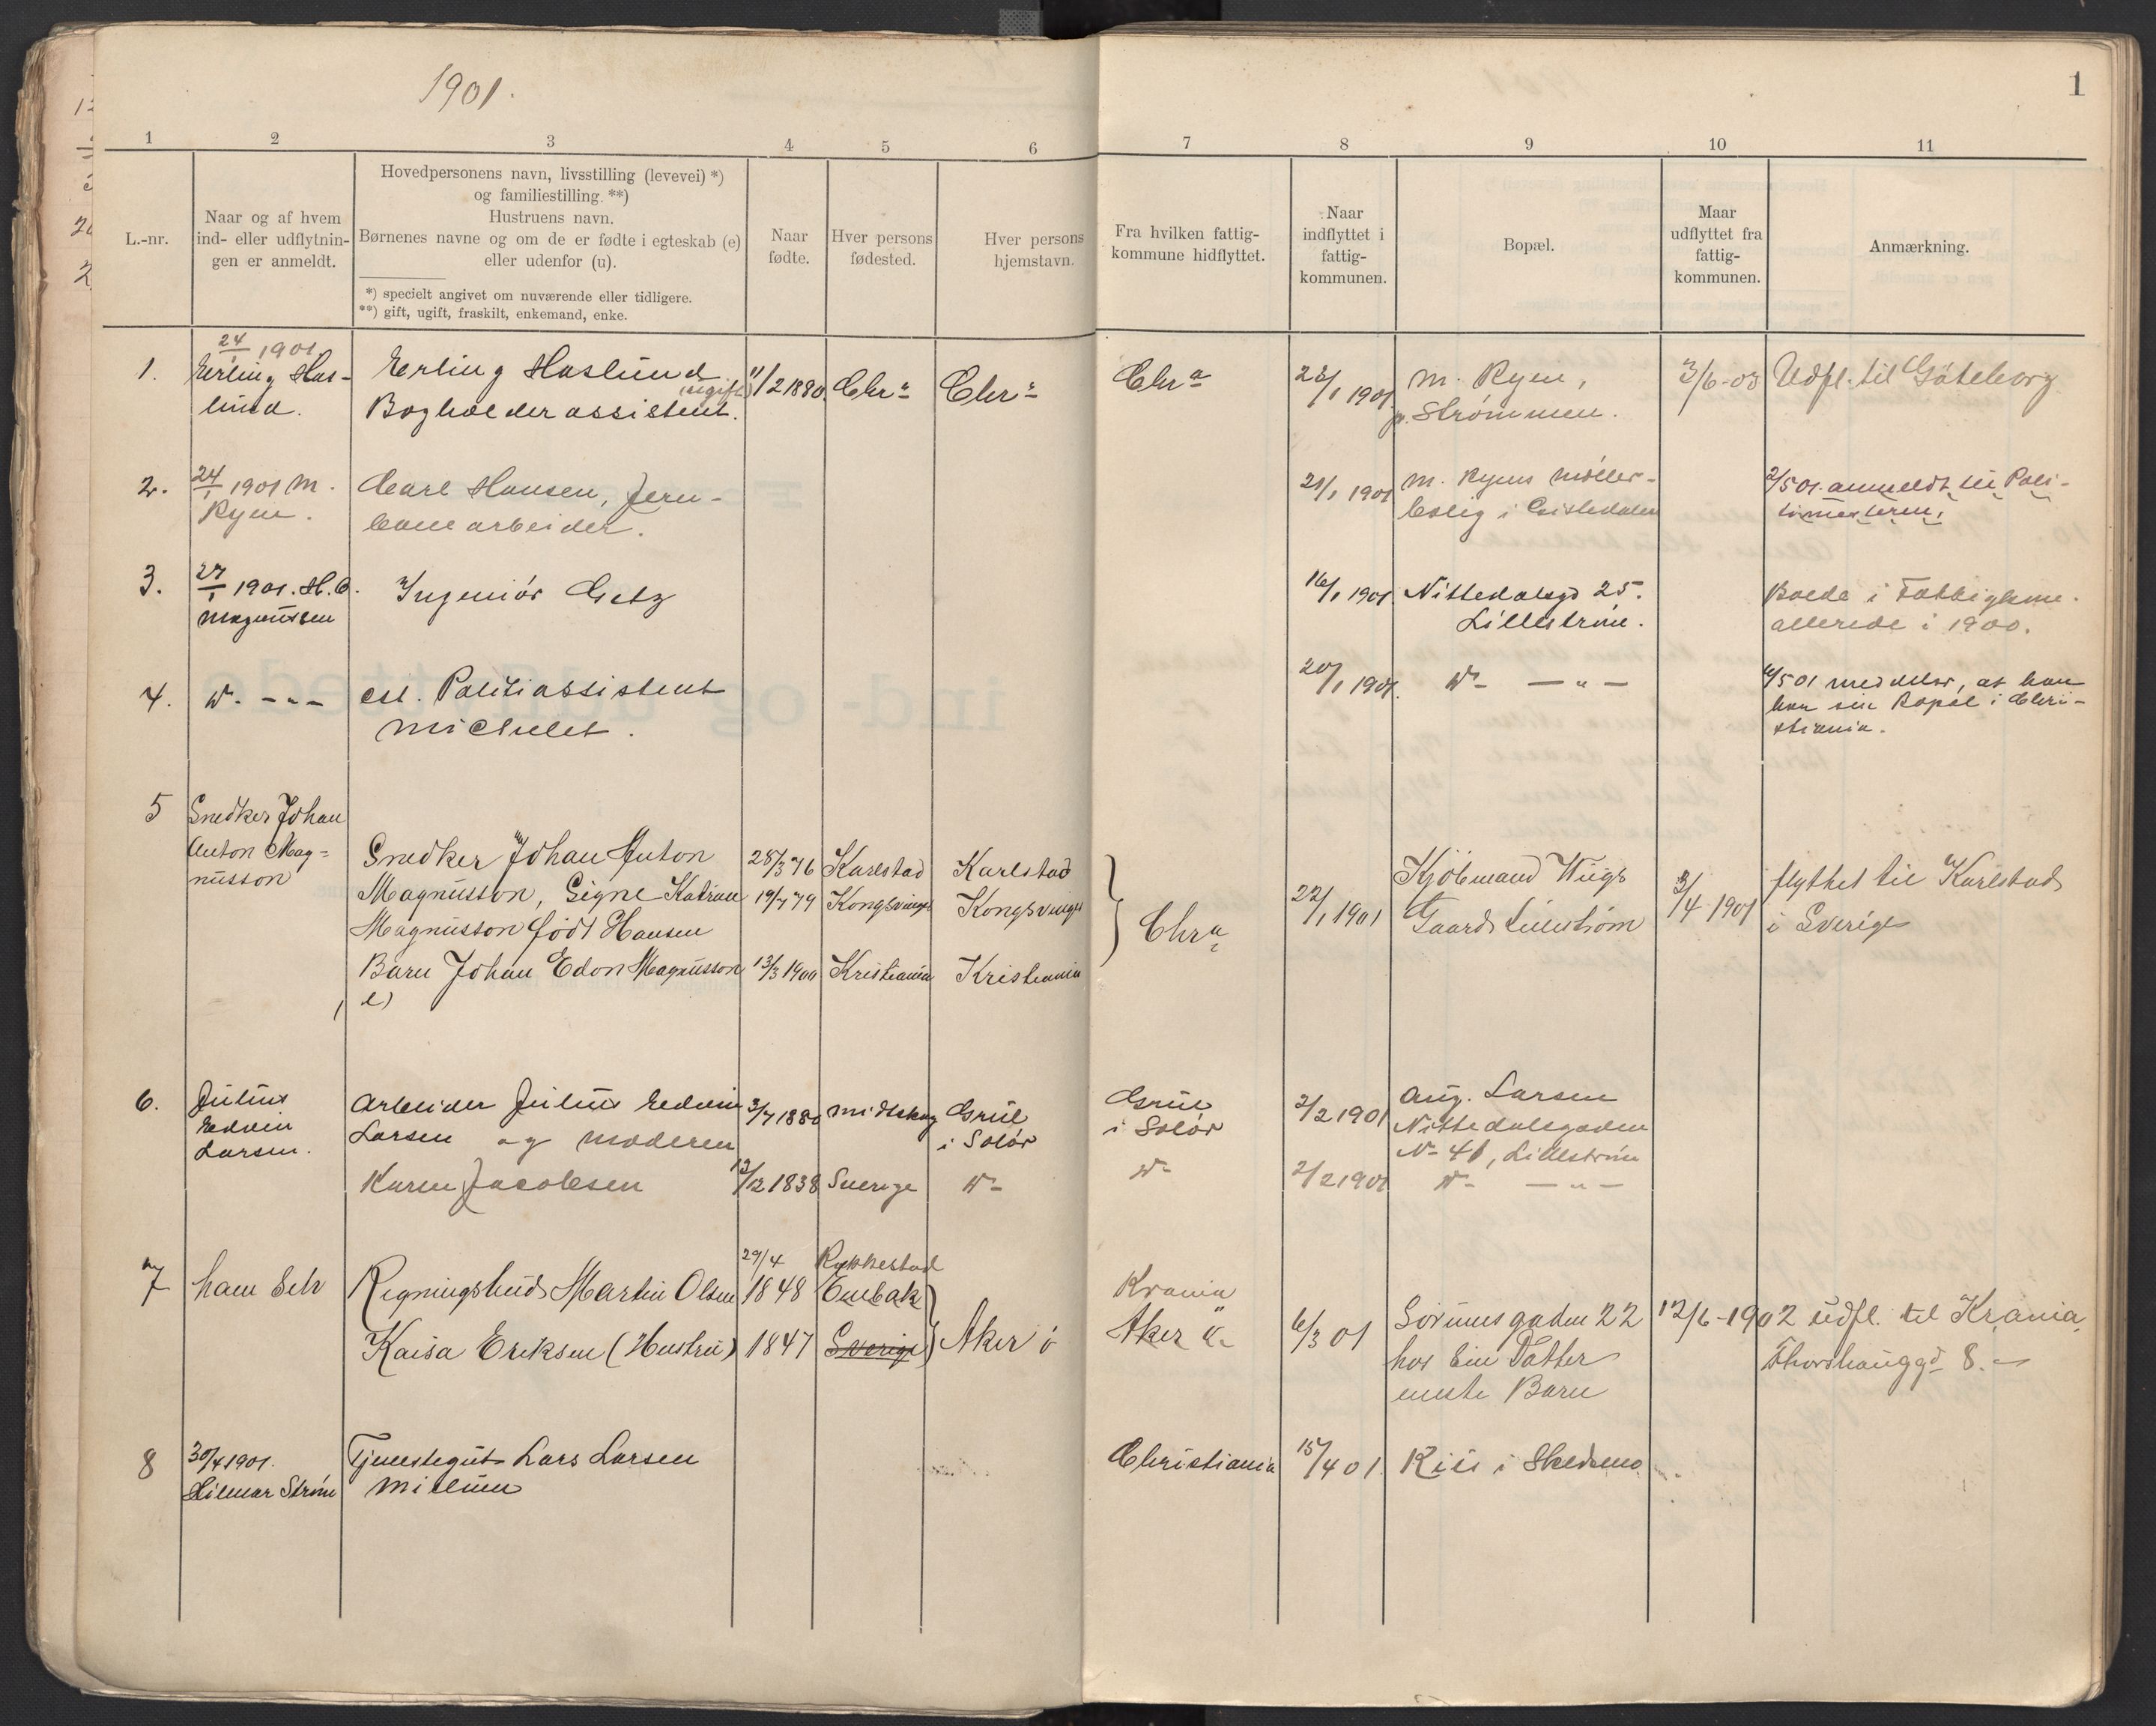 1901.
1
1
2
3
4
5
6
7
8
9
10
11
L.-nr.
Naar og af hvem
ind- eller udflytnin-
gen er anmeldt.
Hovedpersonens navn, livsstilling (levevei) *)
og familiestilling. **)
Hustruens navn.
Børnenes navne og om de er fødte i egteskab (e)
eller udenfor (u).
*) specielt angivet om nuværende eller tidligere.
**) gift, ugift, fraskilt, enkemand, enke.
Naar
fødte.
Hver persons
fødested.
Hver persons
hjemstavn.
Fra hvilken fattig-
kommune hidflyttet.
Naar
indflyttet i
fattig-
kommunen.
Bopæl.
Maar
udflyttet fra
fattig-
kommunen.
Anmærkning.
1.
24/1 1901
Erling Has-
lund.
Erling Haslund
(ugift)
Bogholderassistent.
11/2 1880.
Chra
Chra
Chra
23/1 1901.
M. Ryen,
pr. Strømmen.
3/6-03
Udfl. til Göteborg
2.
24/1 1901 M.
Ryen.
Carl Hansen, Jern-
banearbeider.
21/1 1901
M. Ryens Møller-
bolig i
2/5 01. anmeldt til Poli-
timesteren.
3.
27/1 1901. H. C.
Magnussen
Ingeniør Getz
16/1 1901.
Nittedalsgd 25.
Lillestrøm.
Boede i Fattigkom.
allerede i 1900.
4.
D. - " -
cst. Politiassistent
Michelet.
20/1 1901.
D - " -
4/5 01 meddeler, at han
har sin Bopæl i Chri-
stiania.
5
Snedker Johan
Anton Mag-
nusson
Snedker Johan Anton
Magnusson, Signe Katrine
Magnusson født Hansen
Barn Johan Edon Magnusson
(e)
28/3 76
19/7 79
13/3 1900
Karlstad
Kongsvinger
Kristiania
Karlstad
Kongsvinger
Kristiania
Chra
22/1 1901
Kjøbmand Wiigs
Gaard Lillestrøm
3/4-1901
flyttet til Karlstad
i Sverige
6.
Julius
Edvin
Larsen.
Arbeider Julius Edvin
Larsen og Moderen
Karen Jacobsen
3/7 1880
12/12 1838
Midtskog
Sverige
Grue
i Solør
D -
Grue
i Solør
D -
2/2 1901
2/2 1901
Aug. Larsen
Nittedalsgaden
No 41, Lillestrøm
D - " -
7
ham Selv
Regningsbud Martin Olsen
Kaisa Eriksen (Hustru)
29/4
1848
1847
Rakkestad
Enebak
Sverige
Aker
Krania
Aker
6/3 01
Sørumsgaden 22
hos Ein Datter
eneste Barn
12/6-1902
udfl. til Krania,
Thorshauggd 8.
8
30/4 1901.
Hilmar Strøm
Tjenestegut Lars Larsen
Christiania
15/4 01.
Riis i Skedsmo